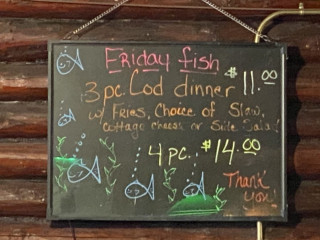 Friday fish
3 pc. Cod dinner $11.00
w/ Fries, Choice of Slaw,
Cottage cheese or Side Salad
4 pc. $14.00
Thank
you!